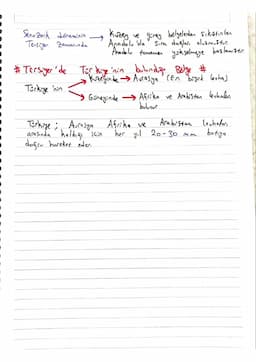 Senozoik dönemin → Kuzey ve güney bölgelerden sıkıştırılan
Tersiyer zamanında Anadolu'da sıra dağları oluşmuştur
Anadolu tamamen yükselmeye başlamıştır
# Tersiyer'de Türkiye'nin bulunduğu Bölge #
Türkiye'nin → Kuzeyinde → Avrasya (en büyük levha)
→ Güneyinde → Afrika ve Arabistan levhaları
bulunur
Türkiye; Avrasya Afrika ve Arabistan levhaları
arasında kaldığı için her yıl 20-30 mm batıya
doğru hareket eder